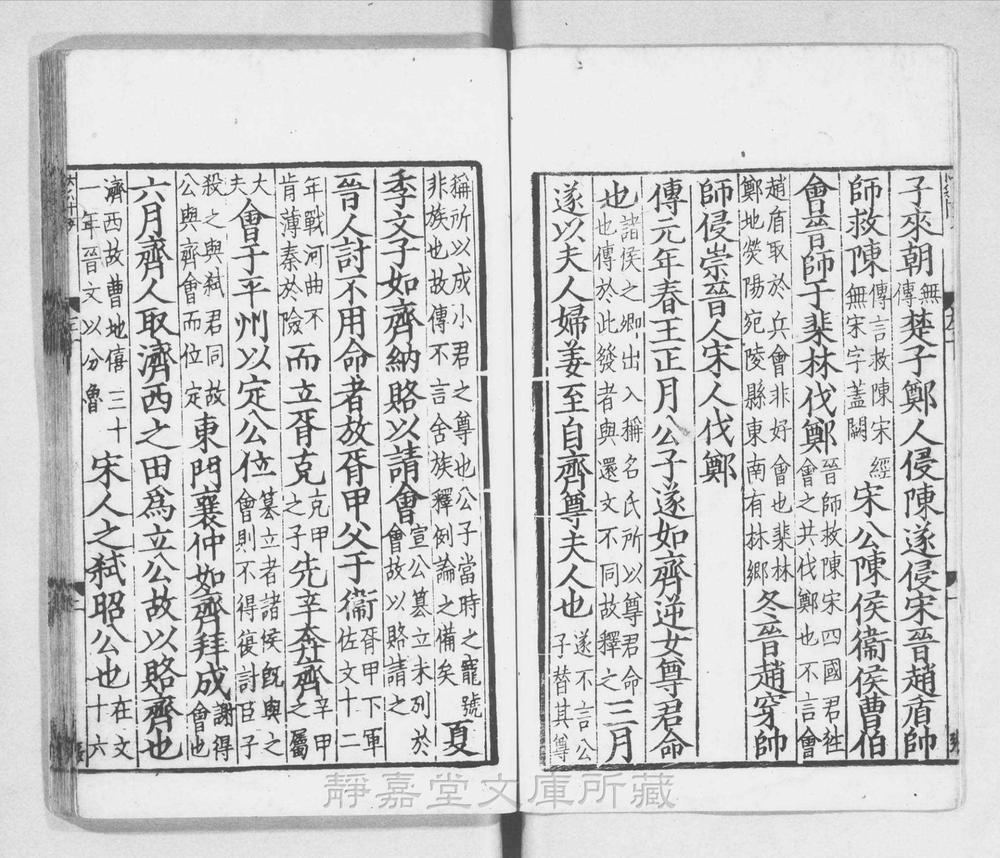 子來朝無傳楚子鄭人侵陳遂侵宋晉趙盾帥
師救陳傳言救陳宋經無宋字蓋闕宋公陳侯衞侯曹伯
會晉師于棐林伐鄭晉師救陳宋四國君往會之共伐鄭也不言會
趙盾取於兵會非好會也棐林鄭地熒陽宛陵縣東南有林鄉冬晉趙穿帥
師侵崇晉人宋人伐鄭
傳元年春王正月公子遂如齊逆女尊君命
也諸侯之卿出入稱名氏所以尊君命也傳於此發者與還文不同故釋之三月
遂以夫人婦姜至自齊尊夫人也遂不言公子替其尊
稱所以成小君之尊也公子當時之寵號非族也故傳不言舍族釋例論之備矣夏
季文子如齊納賂以請會宣公篡立未列於會故以賂請之
晉人討不用命者放胥甲父于衞胥甲下軍佐文十二
年戰河曲不肯薄秦於險而立胥克克甲之子先辛奔齊辛甲之屬
大夫會于平州以定公位篡立者諸侯旣與之會則不得復討臣子
殺之與弒君同故公與齊會而位定東門襄仲如齊拜成謝得會也
六月齊人取濟西之田爲立公故以賂齊也
濟西故曹地僖三十一年晉文以分魯宋人之弒昭公也在文十六
靜嘉堂文庫所藏